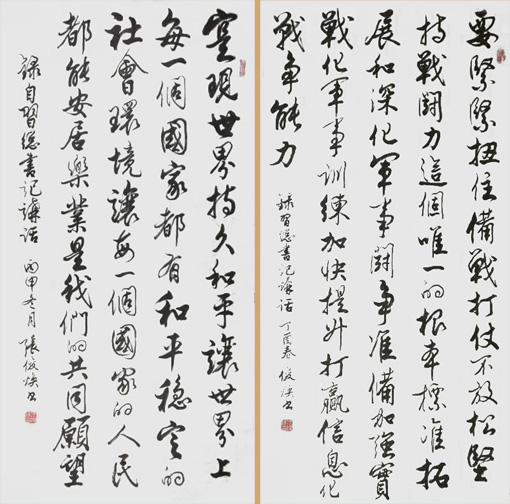 要緊緊扭住備戰打仗不放松堅
持戰鬪力這個唯一的根本標准拓
展和深化軍事鬪争准備加強實
戰化軍事訓練加快提升打贏信息化
戰争能力
錄習總書記講話 丁酉春 俊 書
實現世界持久和平讓世界上
每一個國家都有和平穩定的
社會環境讓每一個國家的人民
都能安居樂業是我們的共同願望
錄自習總書記講話 丙申冬月 張俊 書